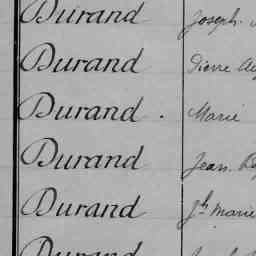 Durand Joseph
Durand Pierre
Durand . Marie
Durand Jean
Durand Jh Marie
Durand